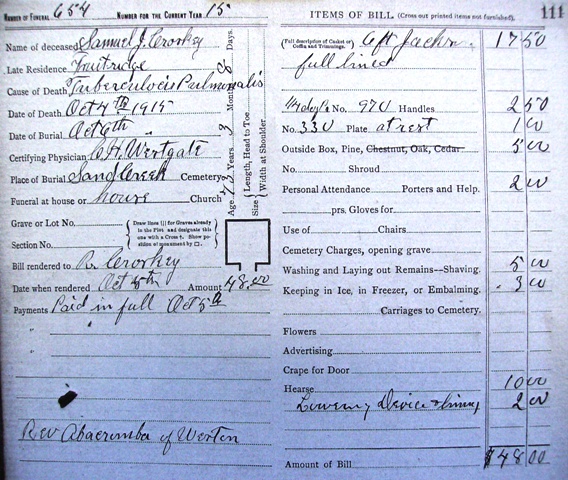 NUMBER OF FUNERAL 654 NUMBER FOR THE CURRENT YEAR 15
Name of deceased Samuel J. Croskey
Late Residence Fruitridge
Cause of Death Tuberculosis Pulmonalis
Date of Death Oct 4th 1915
Date of Burial Oct 6th "
Certifying Physician C. H. Westgate
Place of Burial Sand Creek Cemetery
Funeral at house or house Church
Grave or Lot No.
Section No.
Draw lines (|) for Graves already in the Plot and designate this one with a Cross †. Show position of monument by □.
Bill rendered to R. Croskey
Date when rendered Oct 5th Amount 48.00
Payments Paid in full Oct 5th
"
"
Rev Abacromba of Weston
Age 73 Years 3 Months 8 Days.
Size { Length, Head to Toe
Width at Shoulder
ITEMS OF BILL (Cross out printed items not furnished). 111
(Full description of Casket or Coffin and Trimmings. 6ft 17 50
full lined
No. 970 Handles 2 50
No. 330 Plate at rest 1 00
Outside Box, Pine, Chestnut, Oak, Cedar 5 00
No. Shroud
Personal Attendance Porters and Help. 2 00
prs. Gloves for
Use of Chairs
Cemetery Charges, opening grave
Washing and Laying out Remains—Shaving. 5 00
Keeping in Ice, in Freezer, or Embalming. 3 00
Carriages to Cemetery.
Flowers
Advertising
Crape for Door
Hearse 10 00
Lowering Device & lining 2 00
Amount of Bill $48 00